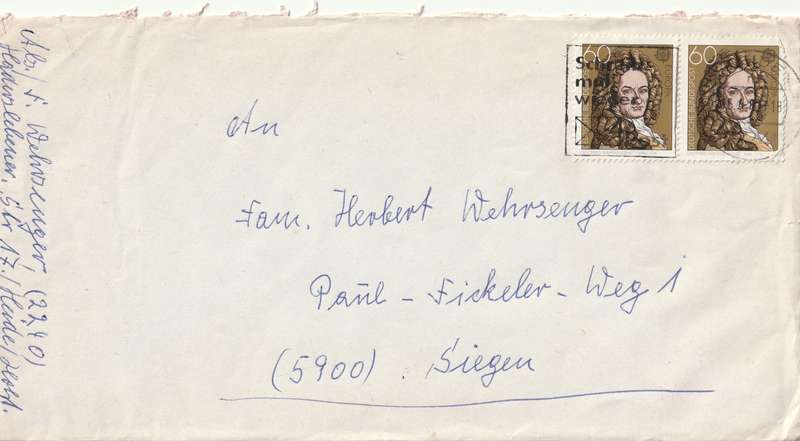 60
60
Schreib
mal
wieder
An
Fam. Herbert Wehrsenger
Paul-Fickeler-Weg 1
(5900). Siegen
Abs/ F. Wehrsenger, (2240)
Haderslebener. Str 17./Heide/Holst.